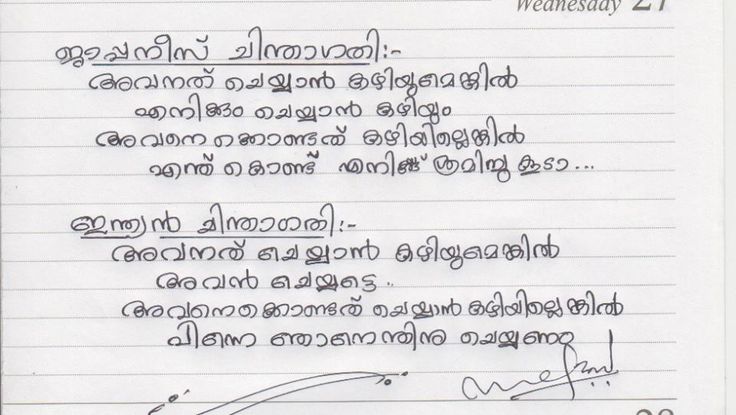 Wednesday 27
ജാപ്പനീസ് ചിന്താഗതി:-
അവനത് ചെയ്യാൻ കഴിയുമെങ്കിൽ
എനിക്കും ചെയ്യാൻ കഴിയും
അവനെ ക്കൊണ്ടത് കഴിയില്ലെങ്കിൽ
എന്ത് കൊണ്ട് എനിക്ക് ശ്രമിച്ചു കൂടാ...
ഇന്ത്യൻ ചിന്താഗതി:-
അവനത് ചെയ്യാൻ കഴിയുമെങ്കിൽ
അവൻ ചെയ്യട്ടെ..
അവനെക്കൊണ്ടത് ചെയ്യാൻ കഴിയില്ലെങ്കിൽ
പിന്നെ ഞാനെന്തിനു ചെയ്യണം